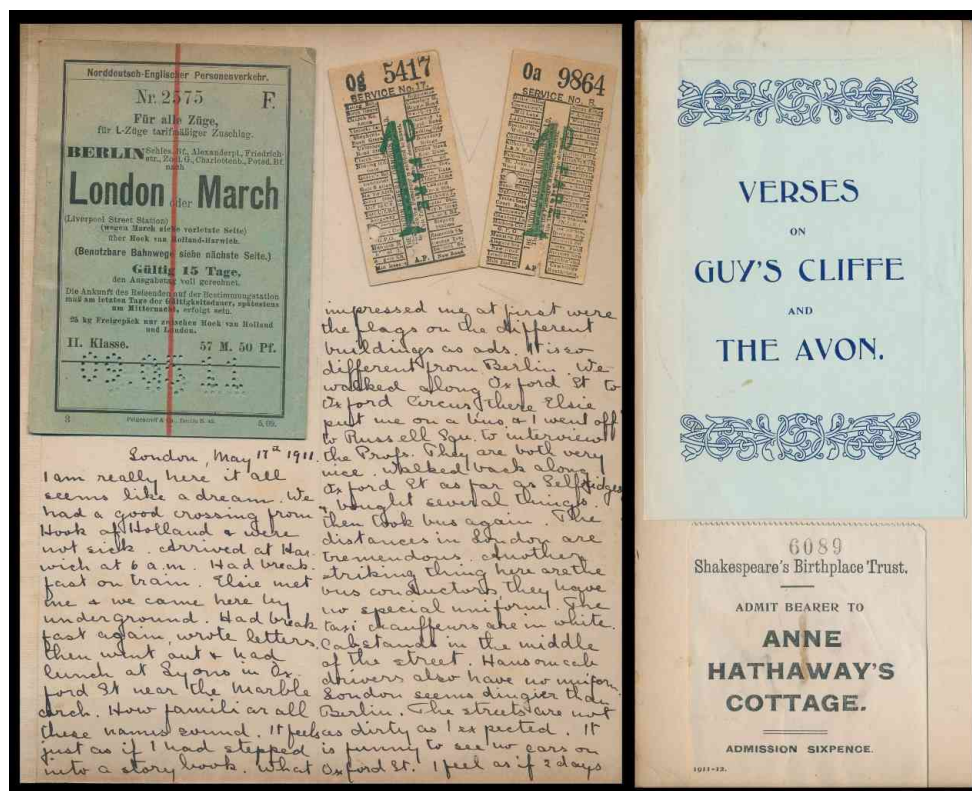 Norddeutsch-Englischer Personenverkehr.
Nr. 2575 F.
Für alle Züge,
für L-Züge tarifmäßiger Zuschlag.
BERLIN Schles. Bf., Alexanderpl., Friedrich-
str., Zool. G., Charlottenb., Potsd. Bf.
nach
London oder March
(Liverpool Street Station)
(wegen March siehe vorletzte Seite)
über Hoek van Holland-Harwich.
(Benutzbare Bahnwege siehe nächste Seite.)
Gültig 15 Tage,
den Ausgabetag voll gerechnet.
Die Ankunft des Reisenden auf der Bestimmungsstation
muß am letzten Tage der Gültigkeitsdauer, spätestens
um Mitternacht, erfolgt sein.
25 kg Freigepäck nur zwischen Hoek van Holland
und London.
II. Klasse. 57 M. 50 Pf.
3 5.09.
Og 5417
SERVICE No. 17.
1D FARE
A.P.
Oa 9864
SERVICE No. 8.
1D FARE
A.P. New Road
London, May 17th 1911.
I am really here it all
seems like a dream. We
had a good crossing from
Hook of Holland & were
not sick. Arrived at Har-
wich at 6 a.m. Had break-
fast on train. Elsie met
me & we came here by
underground. Had break
fast again, wrote letters,
then went out & had
lunch at Lyons in Ox-
ford St near the Marble
Arch. How familiar all
these names sound. It feels
just as if I had stepped
into a story book. What
impressed me at first were
the flags on the different
buildings as ads. It is so
different from Berlin. We
walked along Oxford St to
Oxford Circus, there Elsie
put me on a bus, & I went off
to Russell Squ. to interview
the Profs. They are both very
nice. Walked back along
Oxford St as far as Selfridges
& bought several things.
Then took bus again. The
distances in London are
tremendous. Another
striking thing here are the
bus conductors, they have
no special uniform. The
taxi chauffeurs are in white.
Cabstands in the middle
of the street. Hansomcab
drivers also have no uniform.
London seems dingier than
Berlin. The streets are not
as dirty as I expected. It
is funny to see no cars on
Oxford St. I feel as if 2 days
VERSES
ON
GUY'S CLIFFE
AND
THE AVON.
6089
Shakespeare's Birthplace Trust.
ADMIT BEARER TO
ANNE
HATHAWAY'S
COTTAGE.
ADMISSION SIXPENCE.
1911-12.